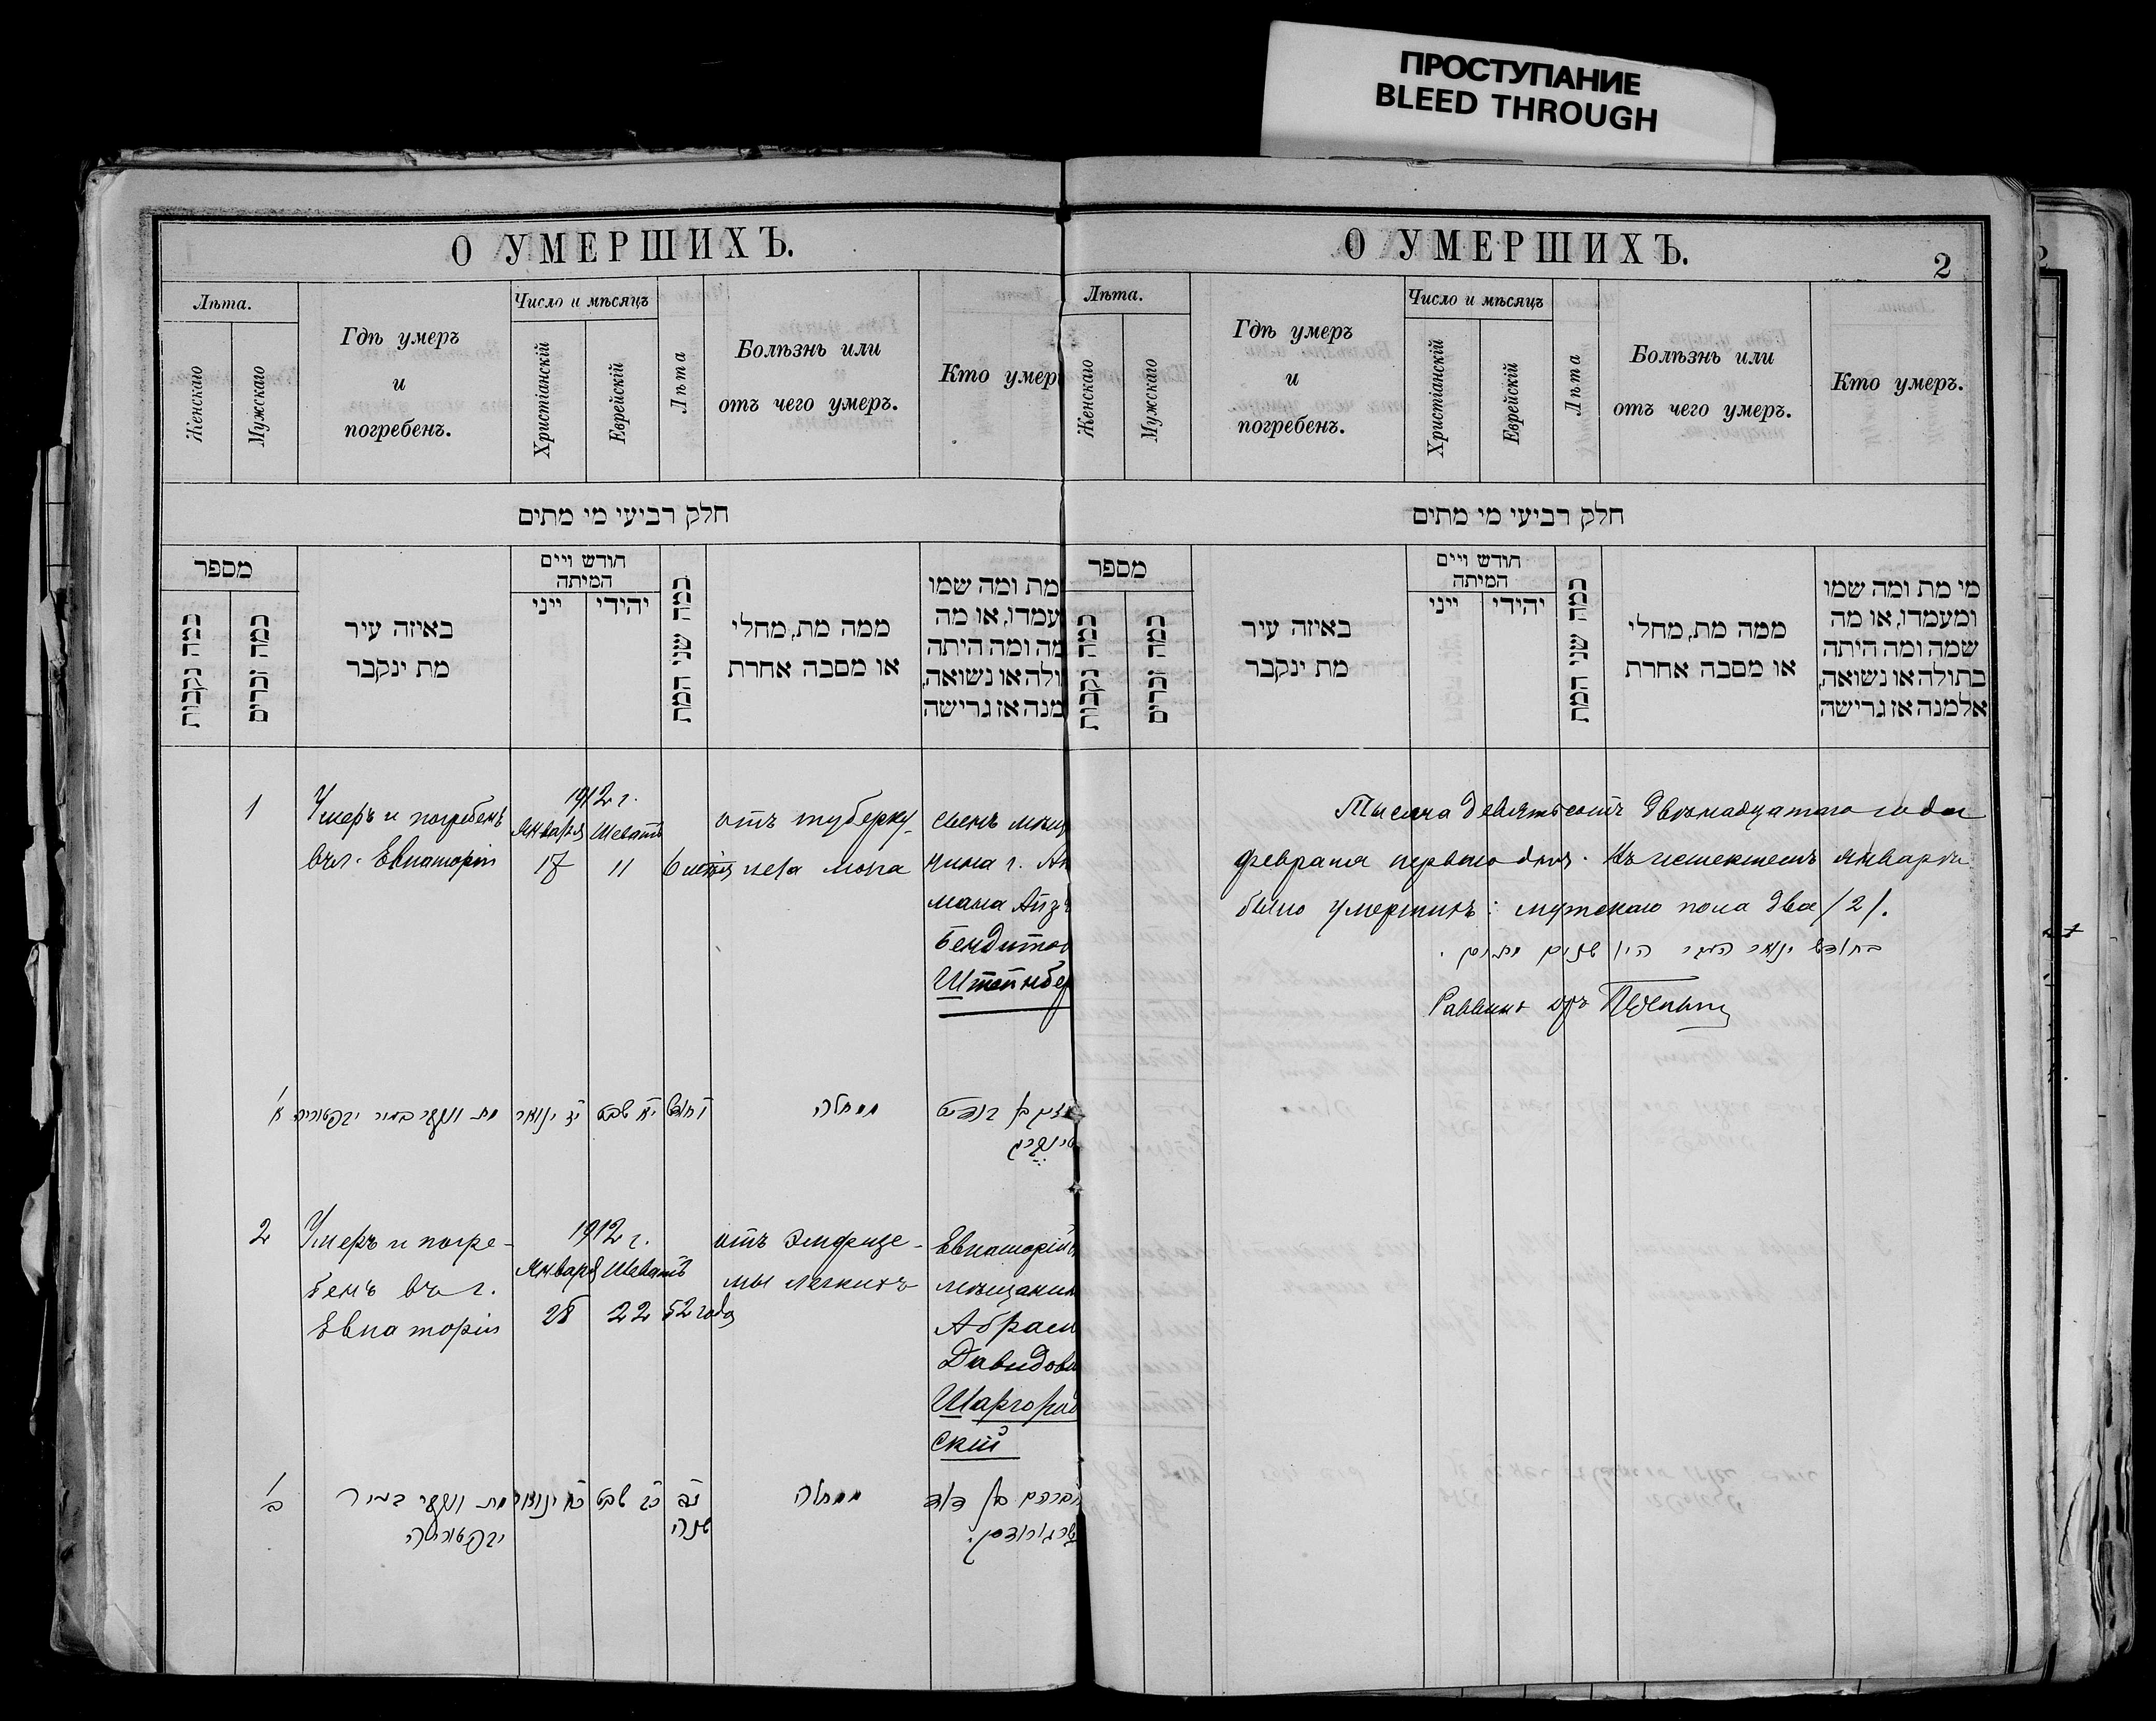 ПРОСТУПАНИЕ
BLEED THROUGH
О УМЕРШИХЪ.
Лѣта.
Женскаго
Мужскаго
Гдѣ умеръ
и
погребенъ.
Число и мѣсяцъ
Христіанскій
Еврейскій
Лѣта
Болѣзнь или
отъ чего умеръ.
Кто умер
חלק רביעי מי מתים
מספר
כמה נקבות
כמה זכרים
באיזה עיר
מת ינקבר
חודש ויים
המיתה
ייני
יהידי
כמה שני המת
ממה מת, מחלי
או מסבה אחרת
מת ומה שמו
עמדו, או מה
מה ומה היתה
ולה או נשואה,
מנה אז גרישה
1
Умеръ и погребенъ
въ г. Евпаторіи
1912 г.
Января
17
Шеватъ
11
6 мѣс
отъ туберку-
леза
сынъ мѣщ
нина г. Ан
Бендитов
Штейнбер
א
מת ונקבר בעיר יבפטוריה
יז ינואר
יא שבט
ו חדש
ממחלה
2
Умеръ и погре-
бенъ въ г.
Евпаторіи
1912 г.
Января
28
Шеватъ
22
52 года
отъ эмфизе-
мы легкихъ
Евпаторій
мѣщанин
Абрам
Давидови
Шаргород
скій
ב
מת ונקבר בעיר
יבפטוריה
כח ינואר
כב שבט
נב
שנה
ממחלה
אברהם בן דוד
שרגורודסקי
О УМЕРШИХЪ.
2
Лѣта.
Женскаго
Мужскаго
Гдѣ умеръ
и
погребенъ.
Число и мѣсяцъ
Христіанскій
Еврейскій
Лѣта
Болѣзнь или
отъ чего умеръ.
Кто умеръ.
חלק רביעי מי מתים
מספר
כמה נקבות
כמה זכרים
באיזה עיר
מת ינקבר
חודש ויים
המיתה
ייני
יהידי
כמה שני המת
ממה מת, מחלי
או מסבה אחרת
מי מת ומה שמו
ומעמדו, או מה
שמה ומה היתה
בתולה או נשואה,
אלמנה אז גרישה
Тысяча девятьсотъ двѣнадцатаго года
февраля перваго дня. Въ истекшемъ январѣ
было умершихъ: мужскаго пола два /2/.
בחודש ינואר היו שנים מתים.
Раввинъ